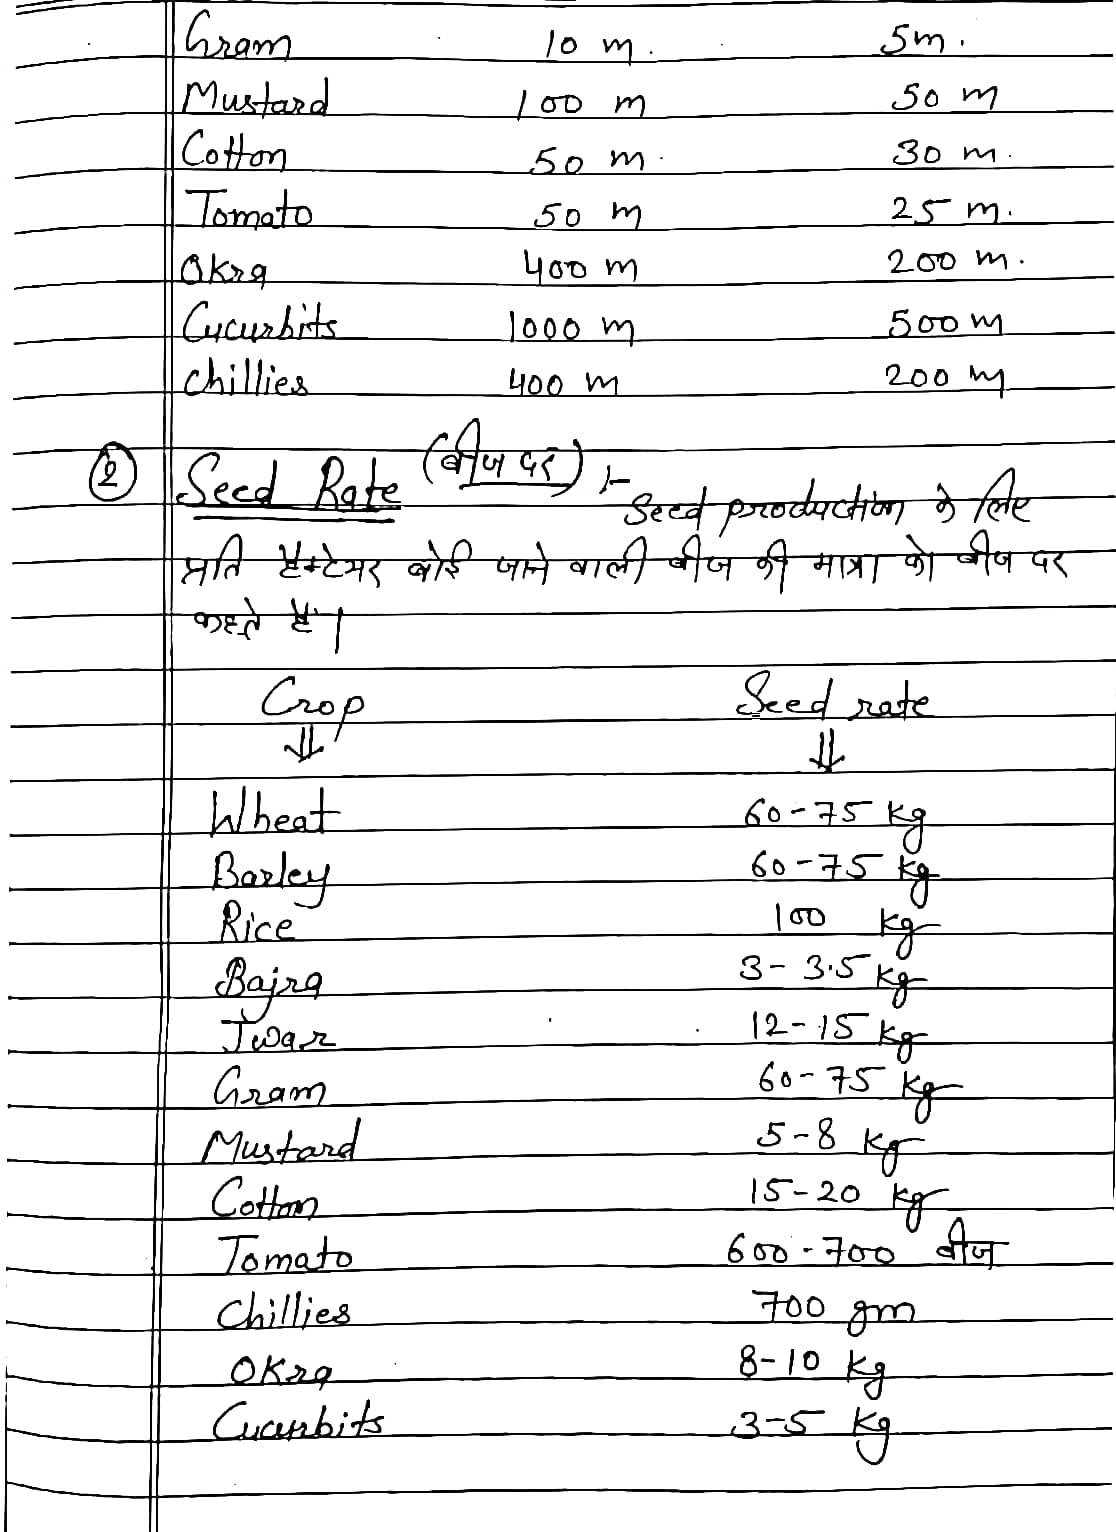 Gram 10 m. 5m.
Mustard 100 m 50 m
Cotton 50 m. 30 m.
Tomato 50 m 25 m.
Okra 400 m 200 m.
Cucurbits 1000 m 500 m
chillies 400 m 200 m
② Seed Rate (बीज दर) :- Seed production के लिए
प्रति हैक्टेयर बोई जाने वाली बीज की मात्रा को बीज दर
कहते हैं।
Crop Seed rate
⇓ ⇓
Wheat 60-75 kg
Barley 60-75 kg
Rice 100 kg
Bajra 3-3.5 kg
Jwar 12-15 kg
Gram 60-75 kg
Mustard 5-8 kg
Cotton 15-20 kg
Tomato 600-700 बीज
Chillies 700 gm
Okra 8-10 kg
Cucurbits 3-5 kg